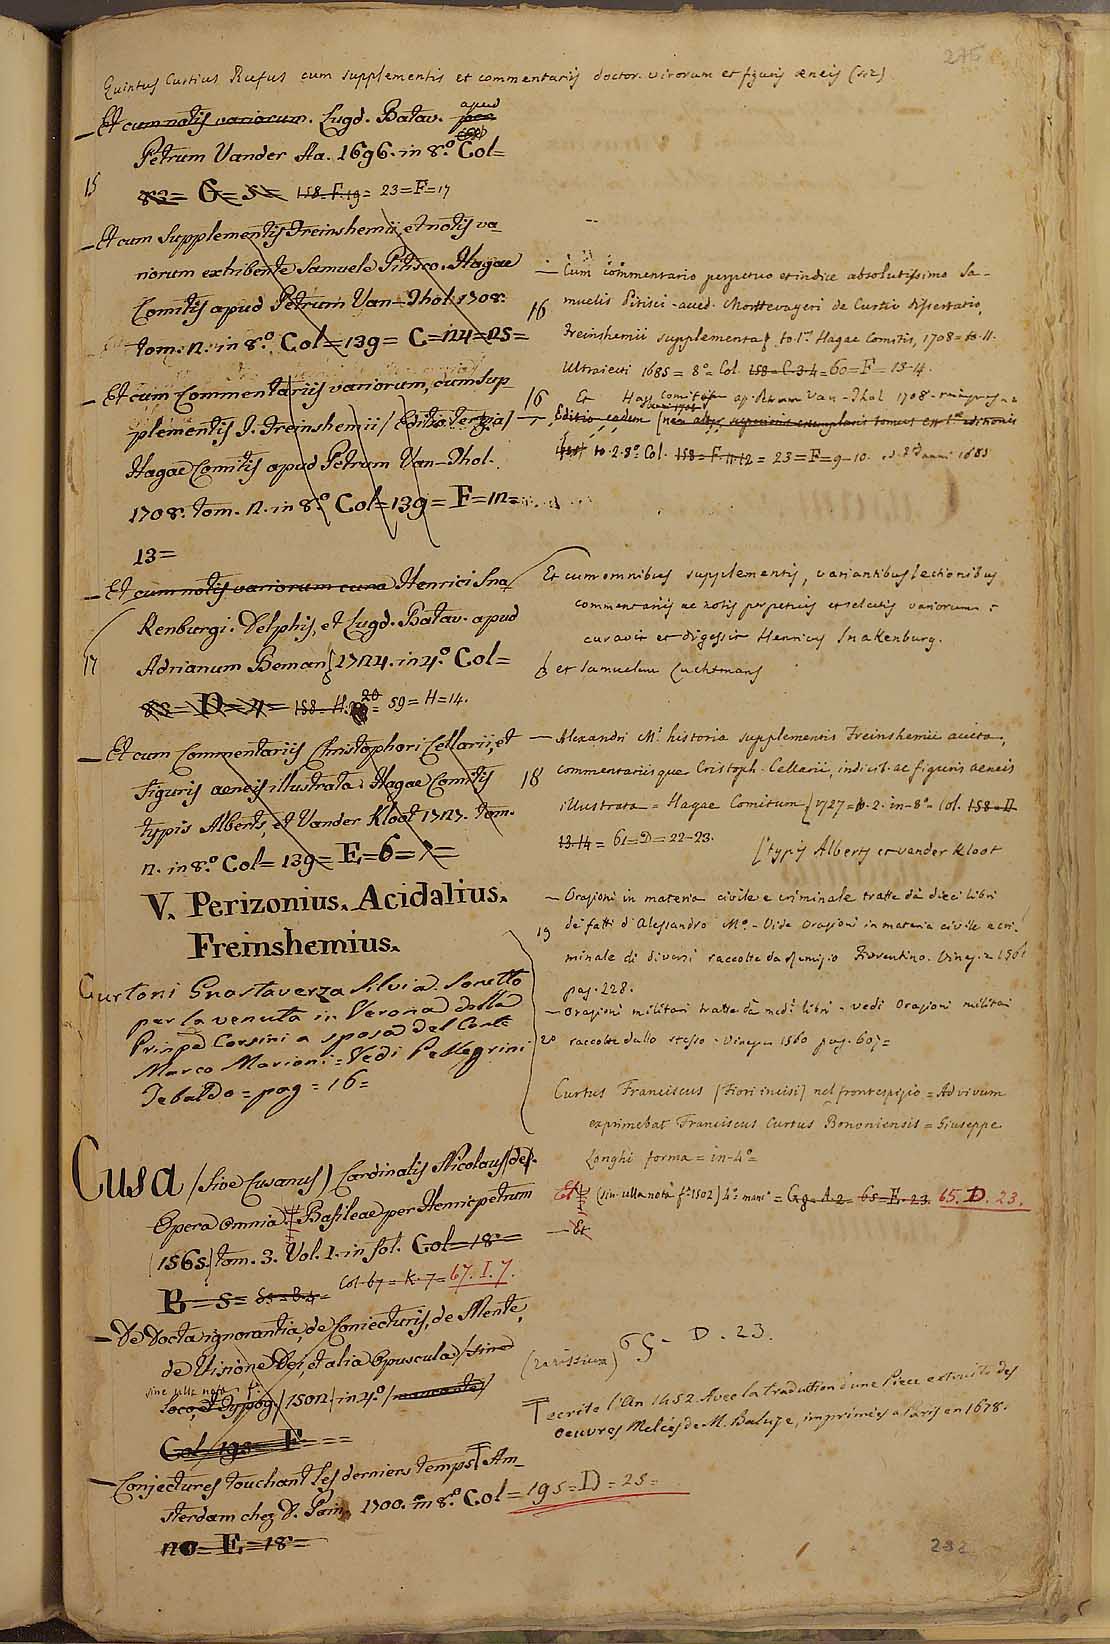 275
Quintus Curtius Rufus cum supplementis et commentariis doctor. virorum et figuris æneis
— Et cum notis variorum. Lugd. Batav. apud
Petrum Vander Aa. 1696. in 8.º Col=
15
83= G=5= 158=F.19= 23=F=17
— Et cum Supplementis Freinshemii, et notis va-
riorum exhibente Samuele Pitisco. Hagae
Comitis apud Petrum Van-Thol. 1708.
tom. 2. in 8.º Col=139= C=24=25=
— Et cum Commentariis variorum, cum sup
plementis J. Freinshemii / Editio tertia /
Hagae Comitis apud Petrum Van-Thol.
1708. tom. 2. in 8.º Col=139= F=12=
13=
— Et cum notis variorum cura Henrici Sna
Kenburgi. Delphis, et Lugd. Batav. apud
17
Adrianum Beman 1724. in 4.º Col=
83= D=4= 158=H. 20 = 59=H=14.
— Et cum Commentariis Christophori Cellarii, et
figuris aeneis illustrata. Hagae Comitis
typis Alberts, et Vander Kloot 1727. tom.
2. in 8.º Col=139= E=6=7=
V. Perizonius. Acidalius.
Freinshemius.
Curtoni Guastaverza Silvia. Sonetto
per la venuta in Verona della
Prinpe Corsini a sposa del Conte
Marco Marioni = Vedi Pellegrini
Tebaldo = pag = 16=
Cusa / sive Cusanus) Cardinalis Nicolaus de
Opera omnia. Basileae per Henricpetrum
1565 tom. 3. Vol. 1. in fol. Col=18=
B=5= 85=B.4= Col 67=K.7= 67. I. 7.
— De Docta ignorantia, de Coniecturis, de Mente,
de Visione Dei, et alia Opuscula / sine
sine ulla nota
loco, et typog / 1502. in 4.º / mancante /
Col. 195= F
— Conjectures touchant les derniers temps Am-
sterdam chez 1700. in 8.º Col=195=D=25=
20= E=18=
— Cum commentario perpetuo et indice absolutissimo Sa-
16
muelis Pitisci - accd. Mottevayeri de Curtio dissertatio,
Freinshemii supplementa to. 1.us Hagae Comitis, 1708= to. II.
Ultraiecti 1685= 8º= Col. 158=C.34= 60=F=13-14.
16
Et Hag. comitis ap. Petrum Van-Thol 1708.
— Editio eadem superioris exemplaris tomus est 1.ae editionis
to. 2. 8º. Col. 158=F.11.12= 23=F=9-10. anni 1685
Et cum omnibus supplementis, variantibus lectionibus
commentariis ac notis perpetuis et selectis variorum:
curavit et digessit Henricus Snakenburg.
et Samuelem Luchtmans
— Alexandri M.i historia supplementis Freinshemii aucta,
18
commentariisque Cristoph. Cellarii, indicib. ac figuris aeneis
illustrata = Hagae Comitum 1727= p. 2. in-8º= Col. 158=D
13.14= 61=D=22-23.
typis Alberts et vander Kloot
— Orazioni in materia civile e criminale tratte da dieci libri
19
de' fatti d'Alessandro M.º - Vide Orazioni in materia civile e cri-
minale di diversi raccolte da Remigio Fiorentino. Vineg. = 1561
pag. 228.
— Orazioni militari tratte da med.i libri - vedi Orazioni militari
20
raccolte dallo stesso - Vineg. 1560 pag. 607=
Curtus Franciscus (Fiori incisi) nel frontespizio = Ad vivum
exprimebat Franciscus Curtus Bononiensis = Giuseppe
Longhi forma = in-4º=
Et (sin. ulla nota fº 1502) 4º. manc. = G 8=A.2= 65=E.23. 65. D. 23.
— Et
(rarissima) 65 - D. 23.
ecrite l'An 1452. Avec la traduction d'une Piece extraite des
oeuvres Melées de M. Baluze, imprimées a Paris en 1678.
232